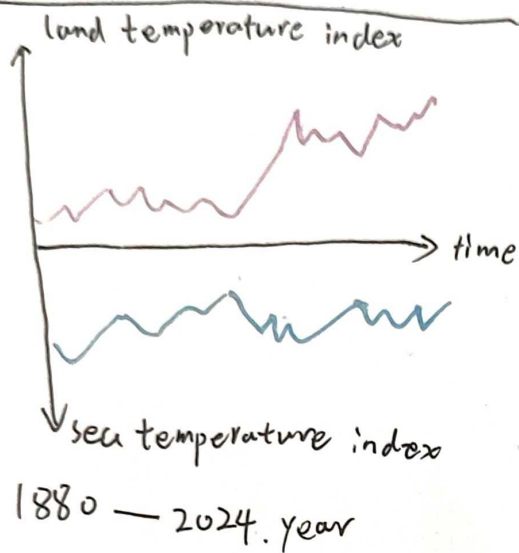 land temperature index
time
sea temperature index
1880 — 2024. year